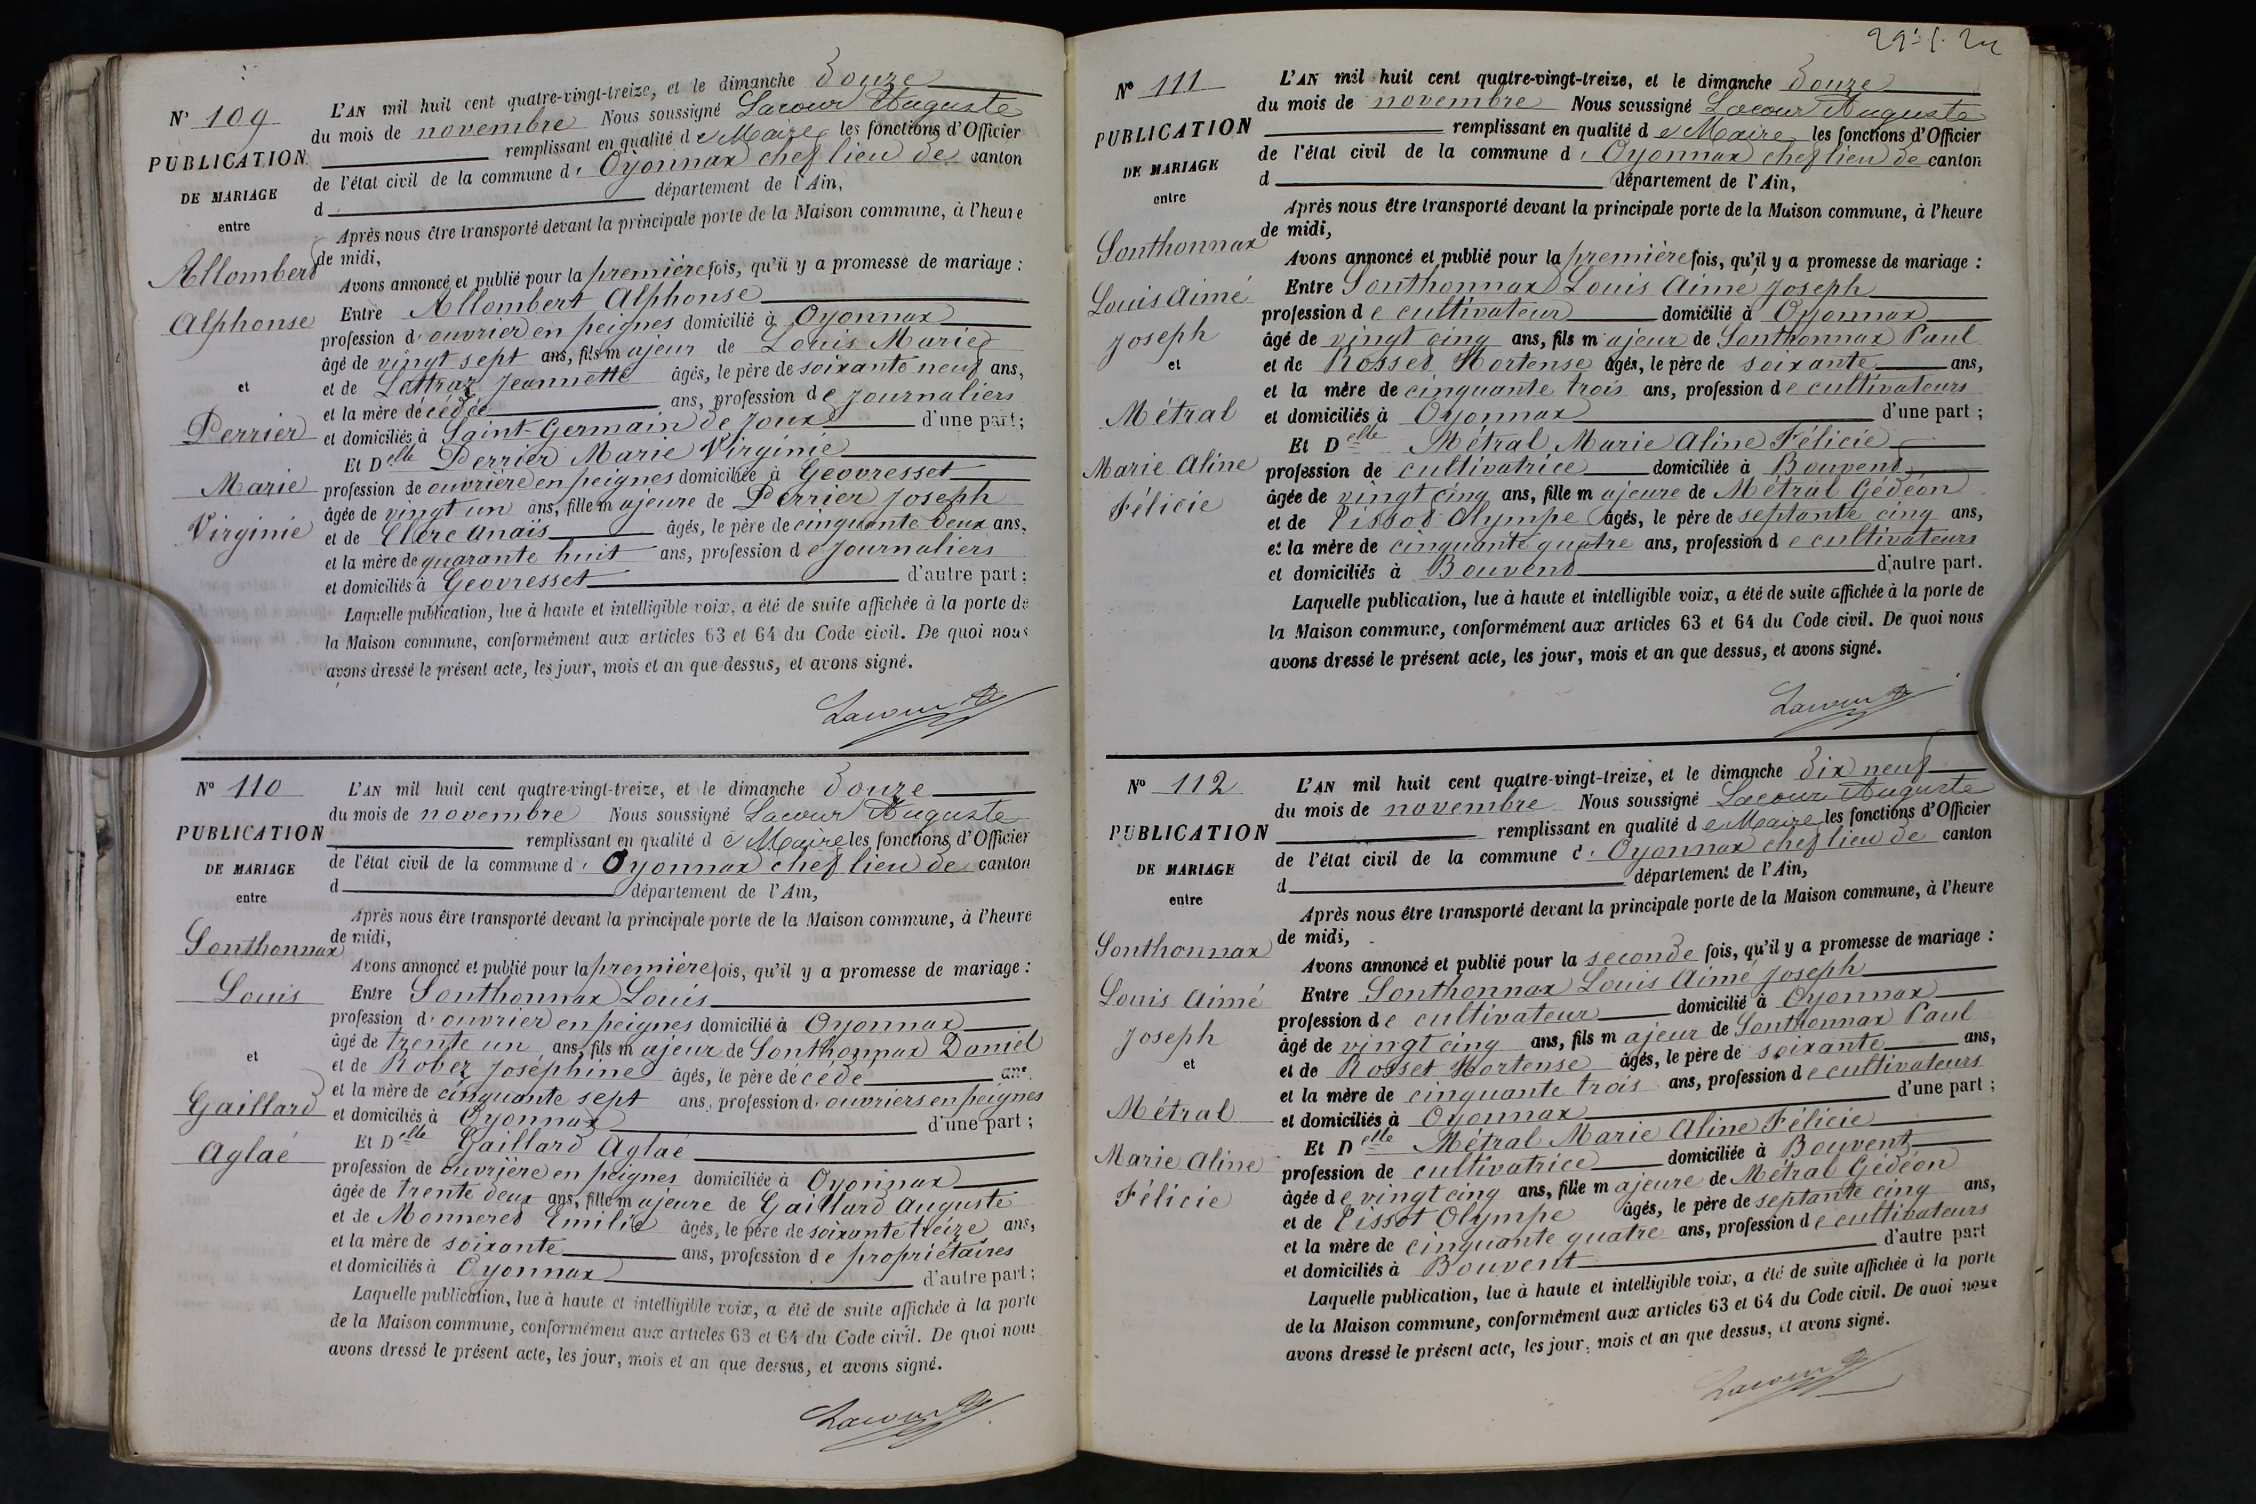 N° 109
PUBLICATION
DE MARIAGE
entre
Allombert
Alphonse
et
Perrier
Marie
Virginie
L'AN mil huit cent quatre-vingt-treize, et le dimanche douze
du mois de novembre Nous soussigné Lacour Auguste
remplissant en qualité de Maire les fonctions d'Officier
de l'état civil de la commune d' Oyonnax chef lieu de canton
d département de l'Ain,
Après nous être transporté devant la principale porte de la Maison commune, à l'heure
de midi,
Avons annoncé et publié pour la première fois, qu'il y a promesse de mariage :
Entre Allombert Alphonse
profession d' ouvrier en peignes domicilié à Oyonnax
âgé de vingt sept ans, fils majeur de Louis Marie
et de Lettraz Jeannette âgés, le père de soixante neuf ans,
et la mère décédée ans, profession de journaliers
et domiciliés à Saint-Germain de Joux d'une part ;
Et Delle Perrier Marie Virginie
profession de ouvrière en peignes domiciliée à Geovresset
âgée de vingt un ans, fille majeure de Perrier Joseph
et de Clerc Anaïs âgés, le père de cinquante deux ans,
et la mère de quarante huit ans, profession de journaliers
et domiciliés à Geovresset d'autre part ;
Laquelle publication, lue à haute et intelligible voix, a été de suite affichée à la porte de
la Maison commune, conformément aux articles 63 et 64 du Code civil. De quoi nous
avons dressé le présent acte, les jour, mois et an que dessus, et avons signé.
Lacour
N° 110
PUBLICATION
DE MARIAGE
entre
Sonthonnax
Louis
et
Gaillard
Aglaé
L'AN mil huit cent quatre-vingt-treize, et le dimanche douze
du mois de novembre Nous soussigné Lacour Auguste
remplissant en qualité de Maire les fonctions d'Officier
de l'état civil de la commune d' Oyonnax chef lieu de canton
d département de l'Ain,
Après nous être transporté devant la principale porte de la Maison commune, à l'heure
de midi,
Avons annoncé et publié pour la première fois, qu'il y a promesse de mariage :
Entre Sonthonnax Louis
profession d' ouvrier en peignes domicilié à Oyonnax
âgé de trente un ans, fils majeur de Sonthonnax Daniel
et de Robez Joséphine âgés, le père décédé ans,
et la mère de cinquante sept ans, profession d' ouvriers en peignes
et domiciliés à Oyonnax d'une part ;
Et Delle Gaillard Aglaé
profession de ouvrière en peignes domiciliée à Oyonnax
âgée de trente deux ans, fille majeure de Gaillard Auguste
et de Monneret Emilie âgés, le père de soixante treize ans,
et la mère de soixante ans, profession de propriétaires
et domiciliés à Oyonnax d'autre part ;
Laquelle publication, lue à haute et intelligible voix, a été de suite affichée à la porte
de la Maison commune, conformément aux articles 63 et 64 du Code civil. De quoi nous
avons dressé le présent acte, les jour, mois et an que dessus, et avons signé.
Lacour
N° 111
PUBLICATION
DE MARIAGE
entre
Sonthonnax
Louis Aimé
Joseph
et
Métral
Marie Aline
Félicie
L'AN mil huit cent quatre-vingt-treize, et le dimanche douze
du mois de novembre Nous soussigné Lacour Auguste
remplissant en qualité de Maire les fonctions d'Officier
de l'état civil de la commune d' Oyonnax chef lieu de canton
d département de l'Ain,
Après nous être transporté devant la principale porte de la Maison commune, à l'heure
de midi,
Avons annoncé et publié pour la première fois, qu'il y a promesse de mariage :
Entre Sonthonnax Louis Aimé Joseph
profession de cultivateur domicilié à Oyonnax
âgé de vingt cinq ans, fils majeur de Sonthonnax Paul
et de Rosset Hortense âgés, le père de soixante ans,
et la mère de cinquante trois ans, profession de cultivateurs
et domiciliés à Oyonnax d'une part ;
Et Delle Métral Marie Aline Félicie
profession de cultivatrice domiciliée à Bouvent
âgée de vingt cinq ans, fille majeure de Métral Gédéon
et de Tissot Olympe âgés, le père de septante cinq ans,
et la mère de cinquante quatre ans, profession de cultivateurs
et domiciliés à Bouvent d'autre part.
Laquelle publication, lue à haute et intelligible voix, a été de suite affichée à la porte de
la Maison commune, conformément aux articles 63 et 64 du Code civil. De quoi nous
avons dressé le présent acte, les jour, mois et an que dessus, et avons signé.
Lacour
N° 112
PUBLICATION
DE MARIAGE
entre
Sonthonnax
Louis Aimé
Joseph
et
Métral
Marie Aline
Félicie
L'AN mil huit cent quatre-vingt-treize, et le dimanche dix neuf
du mois de novembre Nous soussigné Lacour Auguste
remplissant en qualité de Maire les fonctions d'Officier
de l'état civil de la commune d' Oyonnax chef lieu de canton
d département de l'Ain,
Après nous être transporté devant la principale porte de la Maison commune, à l'heure
de midi,
Avons annoncé et publié pour la seconde fois, qu'il y a promesse de mariage :
Entre Sonthonnax Louis Aimé Joseph
profession de cultivateur domicilié à Oyonnax
âgé de vingt cinq ans, fils majeur de Sonthonnax Paul
et de Rosset Hortense âgés, le père de soixante ans,
et la mère de cinquante trois ans, profession de cultivateurs
et domiciliés à Oyonnax d'une part ;
Et Delle Métral Marie Aline Félicie
profession de cultivatrice domiciliée à Bouvent
âgée de vingt cinq ans, fille majeure de Métral Gédéon
et de Tissot Olympe âgés, le père de septante cinq ans,
et la mère de cinquante quatre ans, profession de cultivateurs
et domiciliés à Bouvent d'autre part
Laquelle publication, lue à haute et intelligible voix, a été de suite affichée à la porte
de la Maison commune, conformément aux articles 63 et 64 du Code civil. De quoi nous
avons dressé le présent acte, les jour, mois et an que dessus, et avons signé.
Lacour